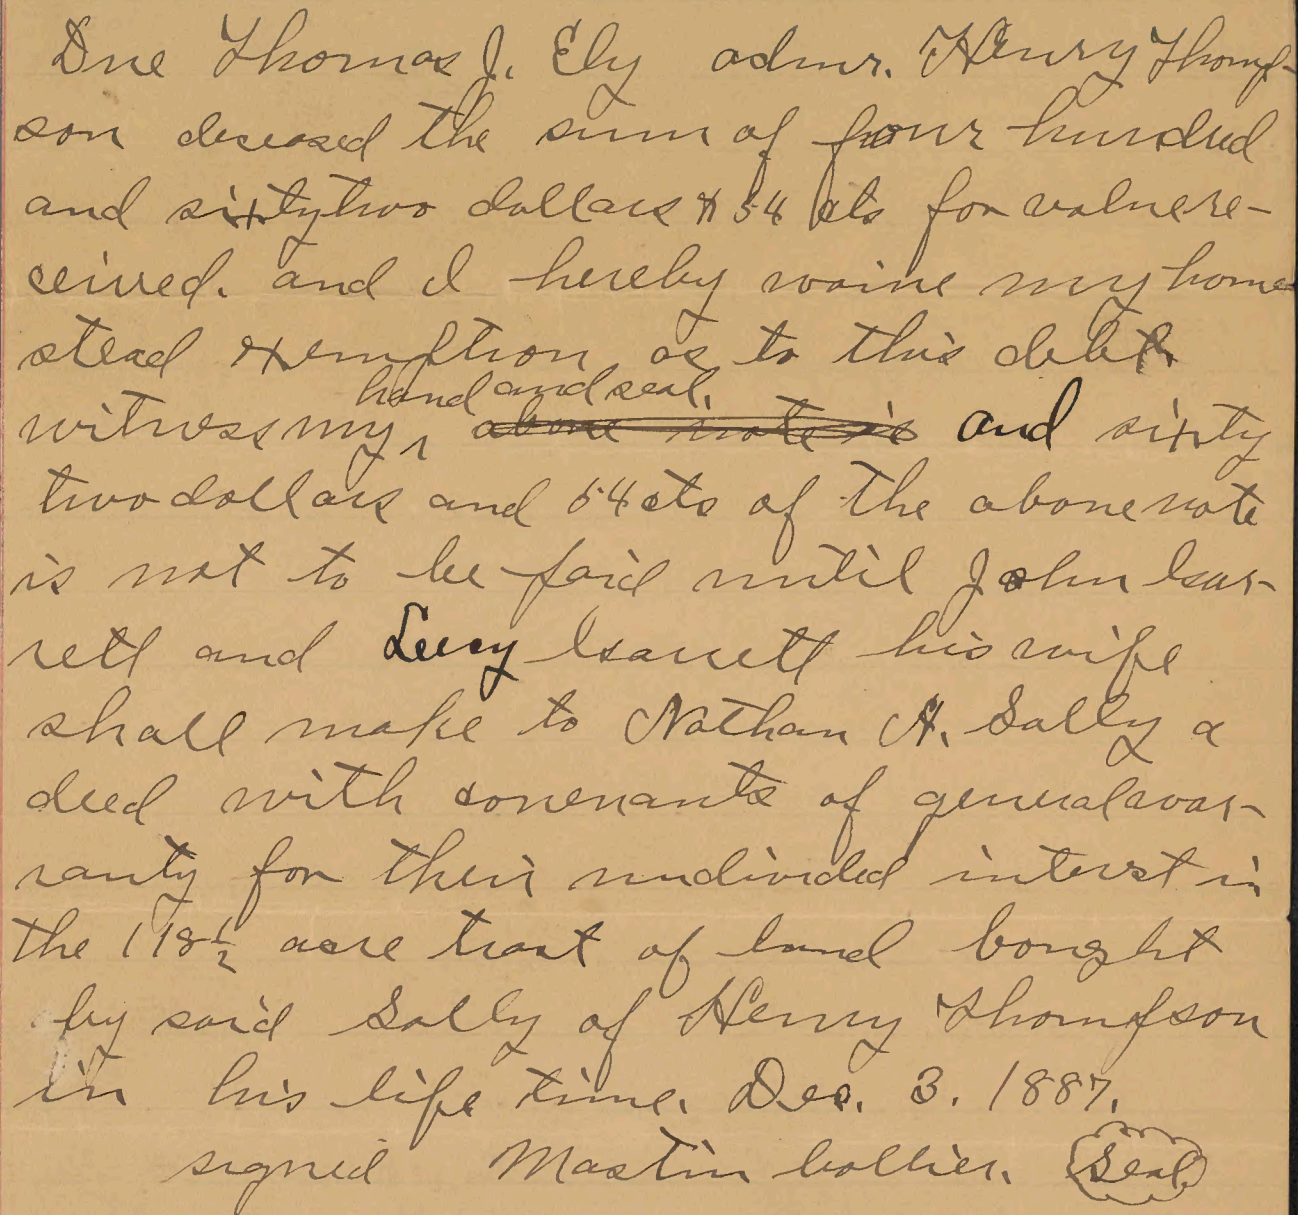 Due Thomas J. Ely admr. Henry Thomp-
son deceased the sum of four hundred
and sixty two dollars & 54 cts for value re-
ceived. and I hereby waive my home
stead exemption as to this debt.
hand and seal.
witness my, above note is and sixty
two dollars and 54 cts of the above note
is not to be paid until John Gar-
rett and Lucy Garrett his wife
shall make to Nathan A. Sally a
deed with covenants of general war-
ranty for their undivided interst in
the 118 1/2 acre tract of land bought
by said Sally of Henry Thompson
in his life time. Dec. 3. 1887.
signed Mastin Collier. Seal.